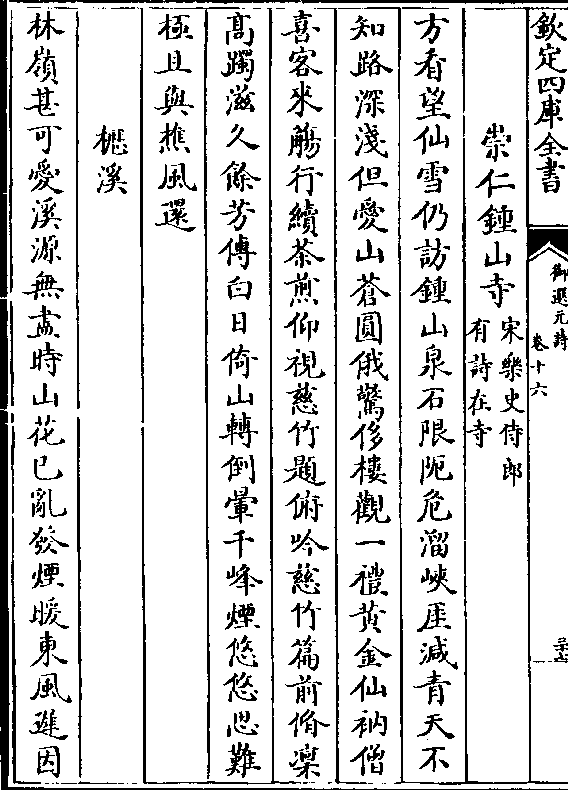 欽定四庫全書
御選元詩
卷十六
崇仁鍾山寺
宋樂史侍郎
有詩在寺
方看望仙雪仍訪鍾山泉石限阨危溜峽厓減青天不
知路深淺但愛山蒼圓俄驚侈樓觀一禮黃金仙衲僧
喜客來觴行續茶煎仰視慈竹題俯吟慈竹篇前脩凜
高躅滋久餘芳傳白日倚山轉倒暈千峰煙悠悠思難
極且與樵風還
櫪溪
林嶺甚可愛溪源無盡時山花已亂發煙暖東風遲因